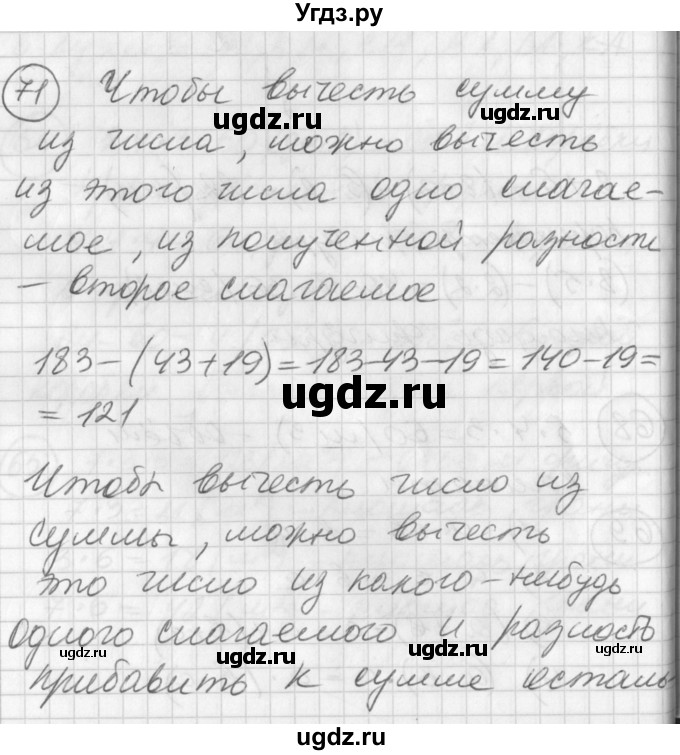 Угдз.ру
71 Чтобы вычесть сумму
ugdz.ru ugdz.ru
из числа, можно вычесть
из этого числа одно слагае-
мое, из полученной разности
- второе слагаемое
ugdz.ru
183-(43+19)=183-43-19=140-19=
ugdz.ru
=121
Чтобы вычесть число из
суммы, можно вычесть
это число из какого-нибудь
одного слагаемого и разность
ugdz.ru ugdz.ru
прибавить к сумме осталь
ugdz.ru